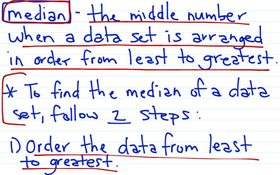 median - the middle number
when a data set is arranged
in order from least to greatest.
* To find the median of a data
set, follow 2 steps:
1) Order the data from least
to greatest.